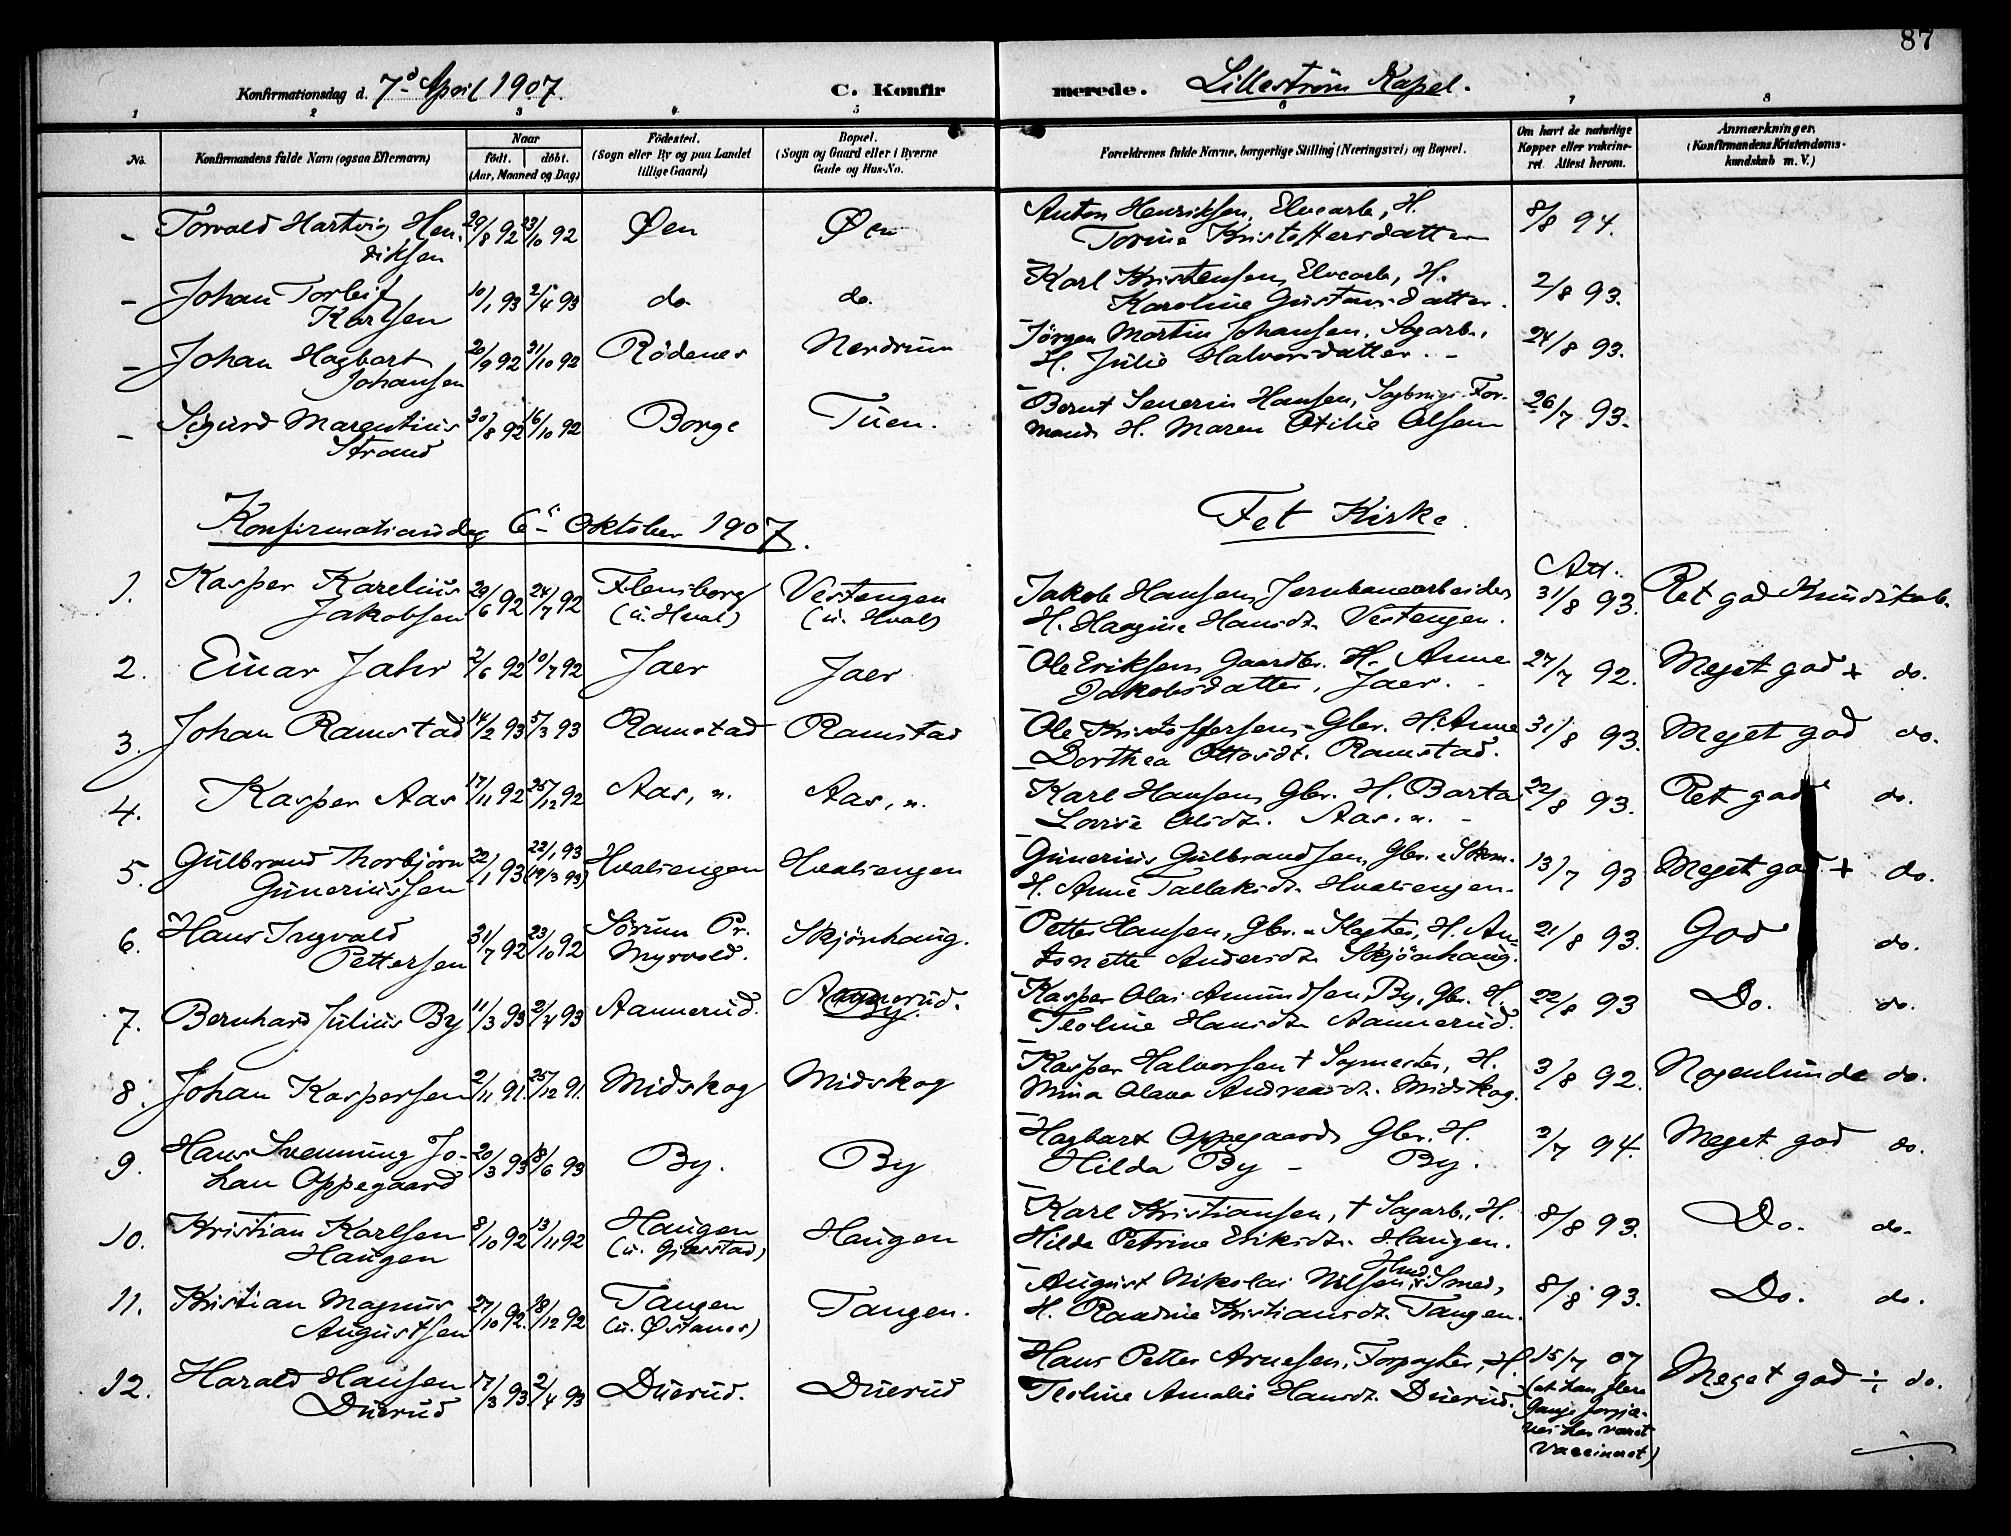 87
Konfirmationsdag d. 7d April 1907. C. Konfirmerede. Lilleström Kapel.
1 2 3 4 5 6 7 8
No. Konfirmandens fulde Navn (ogsaa Efternavn) Naar födt. döbt. (Aar, Maaned og Dag) Födested. (Sogn eller By og paa Landet tillige Gaard) Bopæl. (Sogn og Gaard eller i Byerne Gade og Hus-No. Forældrenes fulde Navne, borgerlige Stilling (Næringsvei) og Bopæl. Om havt de naturlige Kopper eller vakcineret. Attest herom. Anmærkninger. (Konfirmandens Kristendomskundskab m. V.)
- Torvald Hartvig Hen- 29/8 92 23/10 92 Øen Øen Anton Henriksen, Elvearb., H. 8/8 94.
diksen Torine Kristoffersdatter
- Johan Torleif 10/1 93 2/4 93 do do. Karl Kristensen, Elvearb., H. 2/8 93.
Karlsen Karoline Gustavsdatter.
- Johan Hagbart 20/9 92 31/10 92 Rödenes Nerdrum Jörgen Martin Johansen, Sagarb., 24/8 93.
Johansen H. Julie Halvorsdatter. -
- Sigurd Marentius 30/8 92 16/10 92 Borge Tuen. Bernt Severin Hansen, Sagbrugs-For- 26/7 93.
Strand mand, H. Maren Otilie Olsen
Konfirmationsdag 6te Oktober 1907. Fet Kirke.
Att.
1. Kasper Karelius 29/6 92 24/7 92 Flensborg Vestengen Jakob Hansen, Jernbanearbeider 31/8 93. Ret god Kundskab.
Jakobsen (u. Hval) (u. Hval) H. Haagine Hansdt. Vestengen.
2. Einar Jahr 2/6 92 10/7 92 Jaer Jaer Ole Eriksen, Gaardbr. H. Anne 27/7 92. Meget god + do.
Jakobsdatter, Jaer. -
3. Johan Ramstad 14/2 93 5/3 93 Ramstad Ramstad Ole Kristoffersen, Gbr. H. Anne 31/8 93. Meget god do.
Dorthea Ottosdt. Ramstad.
4. Kasper Aas 17/11 92 25/12 92 Aas, n. Aas, n. Karl Hansen, Gbr. H. Barta 22/8 93. Ret god do.
Lovise Olsdt. Aas. n. -
5. Gulbrand Thorbjörn 22/1 93 22/1 93 Hvalsengen Hvalsengen Gunerius Gulbrandsen, Gbr. & Skom. 13/7 93 Meget god + do.
Guneriussen (19/3 93) H. Anne Tallaksdt. Hvalsengen.
6. Hans Ingvald 31/7 92 23/10 92 Sörum Pr. Skjönhaug. Petter Hansen, Gbr. & Slagter, H. An- 21/8 93. God do.
Pettersen Myrvold. tonette Andersdt. Skjönhaug.
7. Bernhard Julius By 11/3 93 2/4 93 Aannerud. Aannerud. By. Kasper Olai Amundsen By, Gbr. H. 22/8 93 Do. do.
Teoline Hansdt. Aannerud.
8. Johan Kaspersen 2/11 91. 25/12 91. Midskog Midskog Kasper Halvorsen † Sagmester, H. 3/8 92. Nogenlunde do.
Mina Olava Andreasdt. Midskog.
9. Hans Svenning Jo- 20/3 93 18/6 93 By. By Hagbart Oppegaard, Gbr. H. 3/7 94. Meget god do.
han Oppegaard Hilda By - By.
10. Kristian Karlsen 8/10 92 13/11 92 Haugen Haugen Karl Kristiansen, † Sagarb., H. 8/8 93. Do. do.
Haugen (u. Gjerstad) Hilda Petrine Eriksdt. Haugen.
11. Kristian Magnus 27/10 92. 18/12 92 Tangen Tangen. August Nikolai Nilsen, Hmd. & Smed, 8/8 93. Do. do.
Augustsen (u. Østanes) H. Randine Kristiansdt. Tangen.
12. Harald Hansen 17/3 93 2/4 93 Duerud. Duerud Hans Petter Arnesen, Forpagter, H. 15/7 07 Meget god ÷ do.
Duerud Teoline Amalie Hansdt. Duerud. (at han flere
Gange forgjæ-
ves har været
vaccineret)